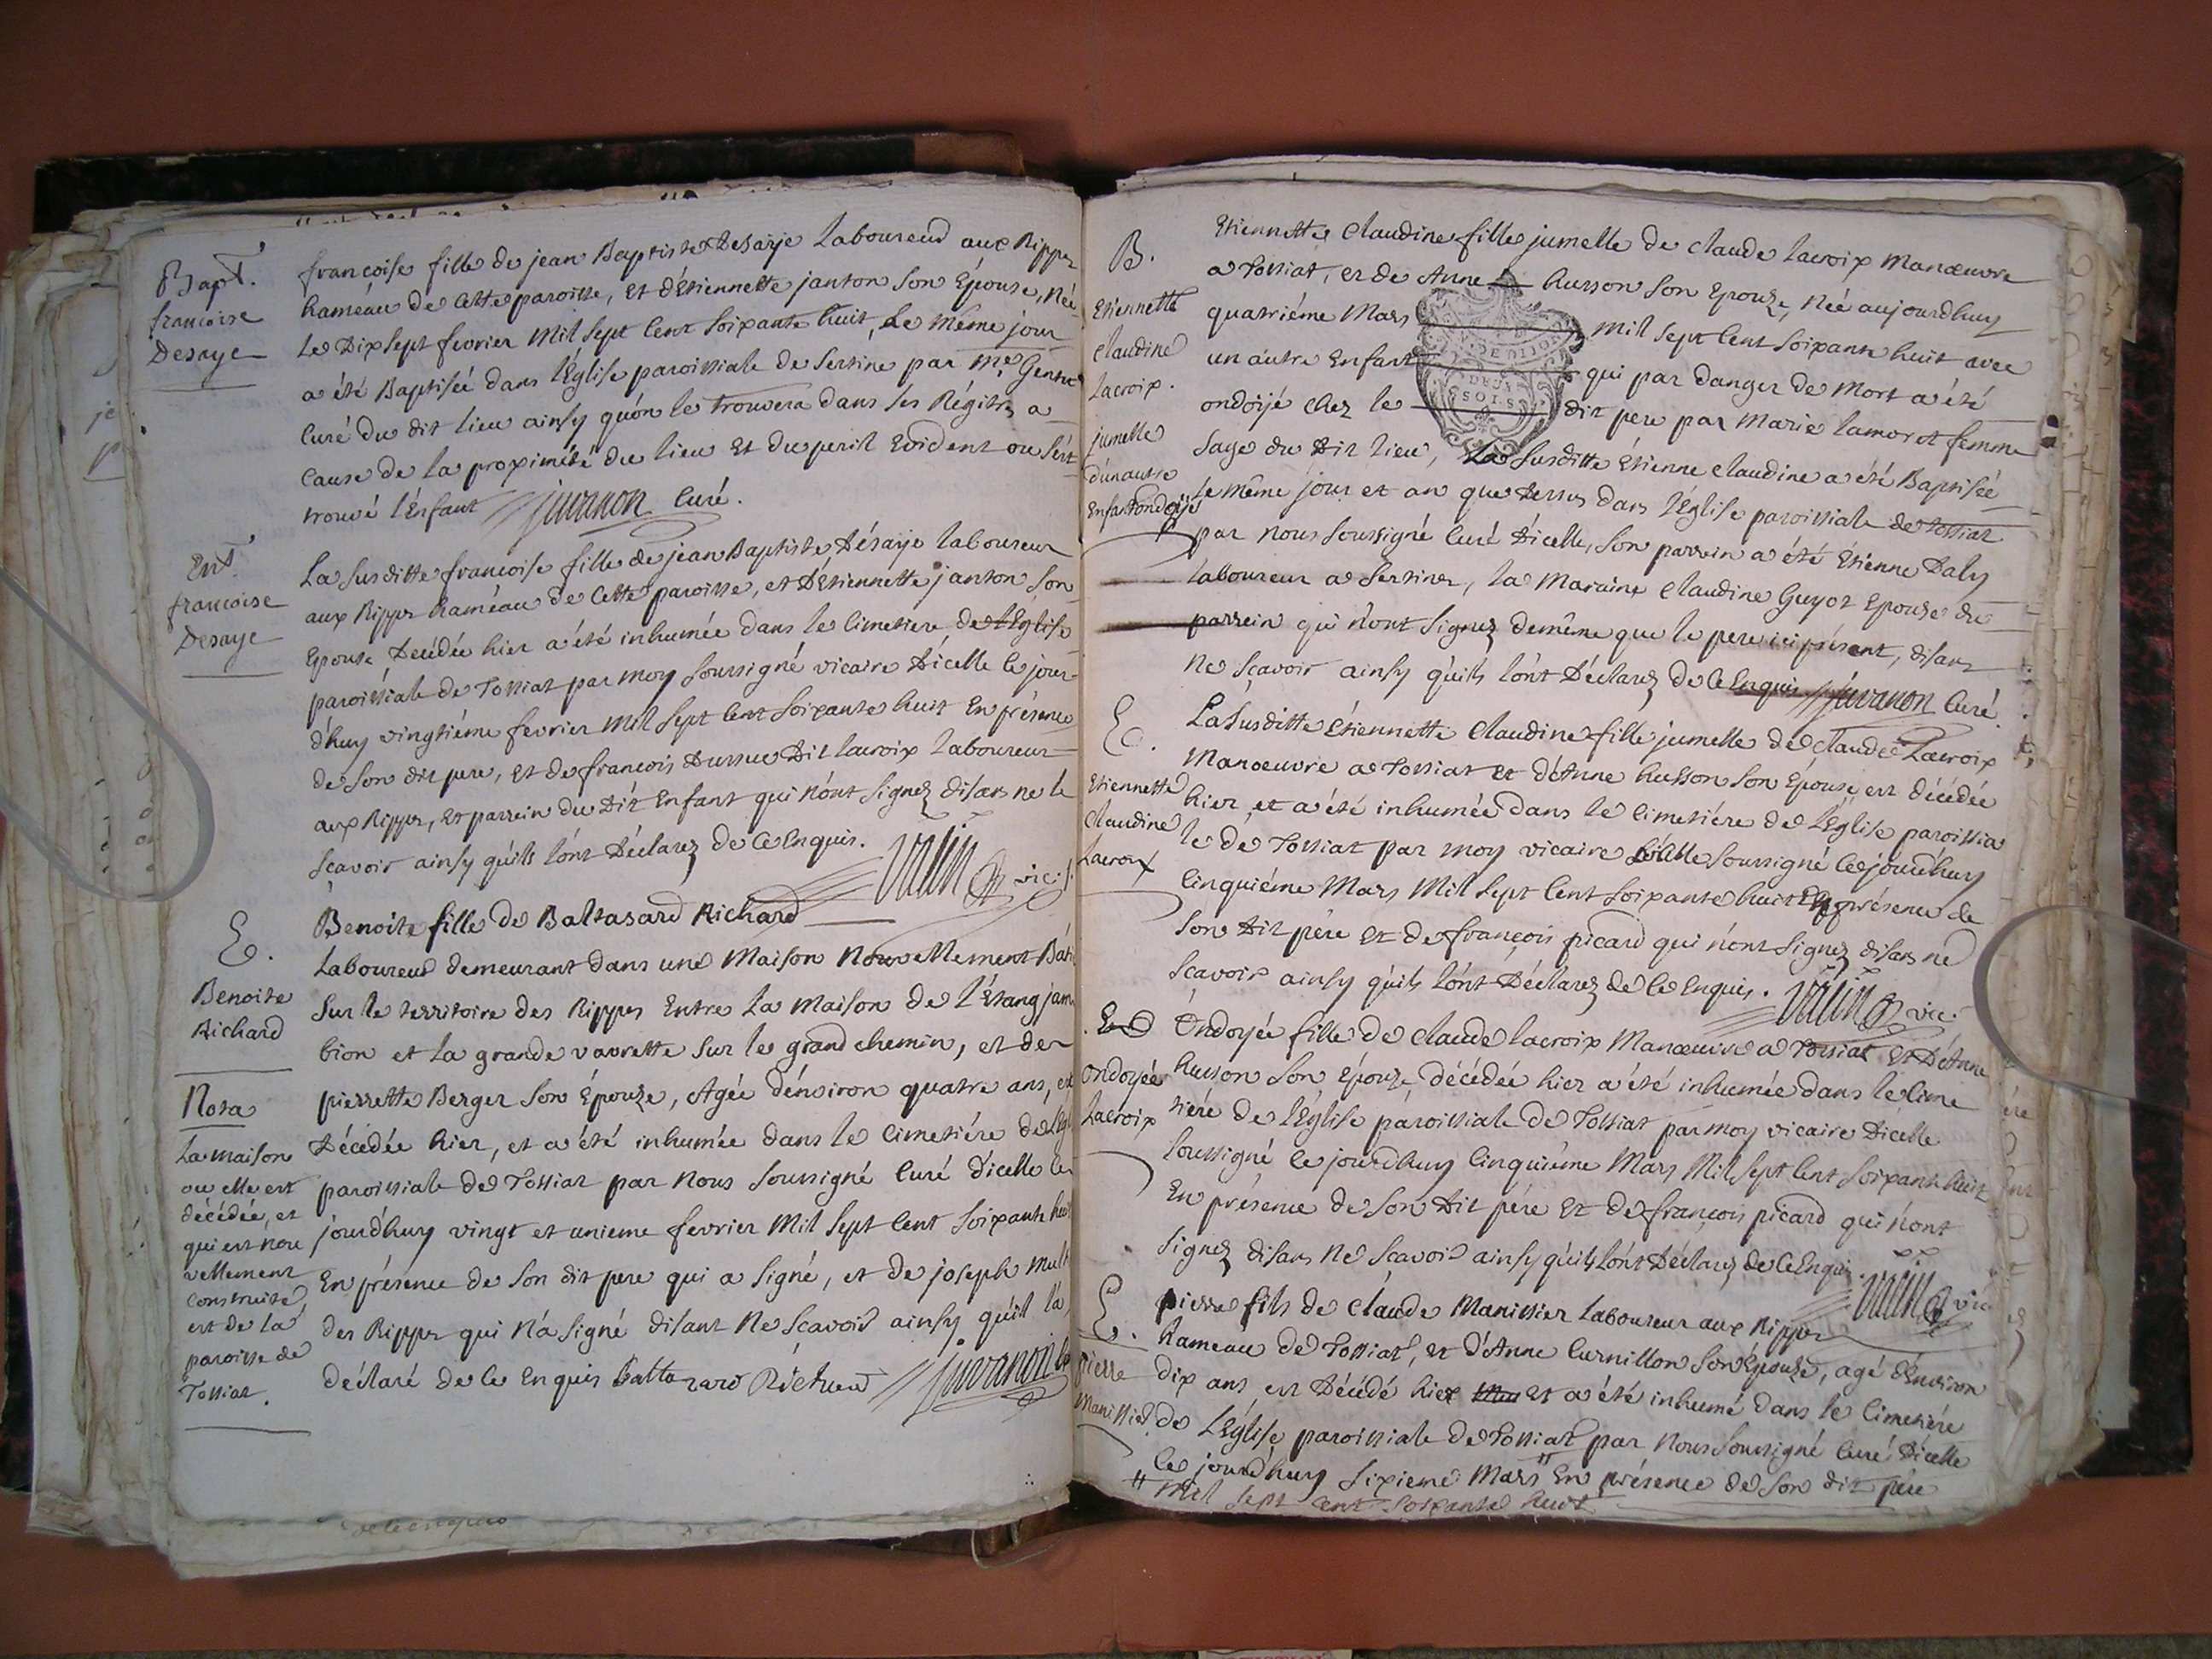 Bapt.
francoise
Desaye
francoise fille de jean Baptiste Desaije Laboureur aux Rippes
hameau de Cette paroisse, et d'Étiennette janton Son Épouse, Née
Le Dix Sept fevrier Mil Sept Cent Soixante huit, Le Même jour
a été Baptisée dans l'Église paroissiale de Sertine par Mre
Curé du dit lieu ainsy qu'on le trouvera dans ses Régitres a
Cause de la proximité du lieu Et du peril Evident ou s'est
trouvé l'Enfant juvanon Curé.
Ent.
francoise
Desaye
La Susditte francoise fille de jean Baptiste Désaije laboureur
aux Rippes hameau de Cette paroisse, et D'Etiennette janton Son
Epouse Décédée hier a été inhumée dans le Cimetiere de l'Eglise
paroissiale de Tossiat par moy Soussigné vicaire D'icelle ce jour-
d'huy vingtiéme fevrier Mil Sept Cent Soixante huit En présence
de Son dit pere, Et de francois Dit lacroix Laboureur
aux Rippes, et parrein du Dit Enfant qui n'ont Signez disans ne le
Scavoir ainsy qu'ils l'ont Déclarez de Ce Enquis.
vic:
E.
Benoite
Richard
Nota
La maison
ou elle est
décédée, et
qui est nou
vellement
Construite,
est de la
paroisse de
Tossiat.
Benoite fille de Baltasard Richard
Laboureur demeurant dans une Maison Nouvellement Bati
Sur le territoire des Rippes Entre La Maison de l'Étang jam
bion et la grande vavrette Sur le grand chemin, et de
pierrette Berger Son Épouze, Agée d'environ quatre ans, est
Décédée hier, et a été inhumée dans le Cimetiére de l'Egl
paroissiale de Tossiat par Nous Soussigné Curé d'icelle ce
jourd'huy vingt et unieme fevrier Mil Sept Cent Soixante huit
En présence de Son dit pere qui a Signé, et de joseph
des Rippes qui N'a Signé disant Ne Scavoir ainsy qu'il l'a
déclaré de Ce Enquis Baltazard Richard juvanon
B.
Etiennette
Claudine
Lacroix.
jumelle
d'un autre
Enfant ondoijé
Etiennette Claudine fille jumelle de Claude Lacroix Manœuvre
a Tossiat, et de Anne husson Son Epouze, Née aujourdhuy
quatriéme Mars Mil Sept Cent Soixante huit avec
un autre Enfant qui par danger de Mort a été
ondoijé chez le dit pere par Marie lamorot femme
Sage du Dit lieu, La Susditte Étienne Claudine a été Baptisée
le même jour et an que dessus dans l'Église paroissiale de Tossiat
par Nous Soussigné Curé D'icelle, Son parrein a été Etienne Daly
Laboureur a Sertines, la Maraine Claudine Guyot Epouse du
parrein qui n'ont Signez de même que le pere ici présent, disans
Ne Scavoir ainsy qu'ils l'ont Déclarez de Ce Enquis juvanon Curé
E.
Etiennette
Claudine
Lacroix
La Susditte Étiennette Claudine fille jumelle de Claude Lacroix
Manoeuvre a Tossiat et d'Anne husson Son Épouse est décédée
hier, et a été inhumée dans le Cimetiére de l'Église paroissia
le de Tossiat par moy vicaire d'icelle Soussigné cejourd'huy
Cinquiéme Mars Mil Sept Cent Soixante huit En présence de
Son Dit pére Et de françois picard qui n'ont Signez disans ne
Scavoir ainsy qu'ils l'ont Déclarez de Ce Enquis. vic.
E
Ondoyée
Lacroix
Ondoyée fille de Claude lacroix Manœuvre a Tossiat Et D'Anne
husson Son Épouze décédée hier a été inhumée dans le Cime
tiére de l'Église paroissiale de Tossiat par moy vicaire D'icelle
Soussigné ce jourd'huy Cinquiéme Mars Mil Sept Cent Soixante huit
En présence de Son Dit pére Et de francois picard qui n'ont
Signez disans Ne Scavoir ainsy qu'ils l'ont Déclarez de Ce Enquis.
vic
E.
Pierre
Manissier
pierre fils de Claude Manissier Laboureur aux Rippes
hameau de Tossiat, et d'Anne Curnillon Son Épouze, agé d'Environ
dix ans est Décédé hier et a été inhumé dans le Cimetiére
de l'Église paroissiale de Tossiat par Nous Soussigné Curé D'icelle
Ce jourd'huy Sixieme Mars " En présence de Son dit pére
" Mil Sept Cent Soixante huit